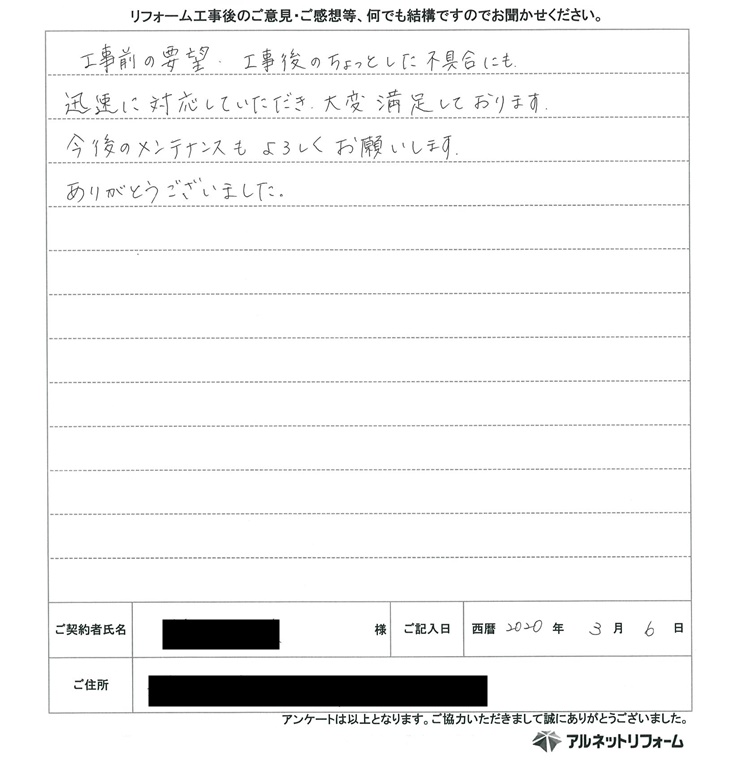 リフォーム工事後のご意見・ご感想等、何でも結構ですのでお聞かせください。
工事前の要望、工事後のちょっとした不具合にも
迅速に対応していただき、大変満足しております。
今後のメンテナンスもよろしくお願いします。
ありがとうございました。
ご契約者氏名 様 ご記入日 西暦 2020 年 3 月 6 日
ご住所
アンケートは以上となります。ご協力いただきまして誠にありがとうございました。
アルネットリフォーム